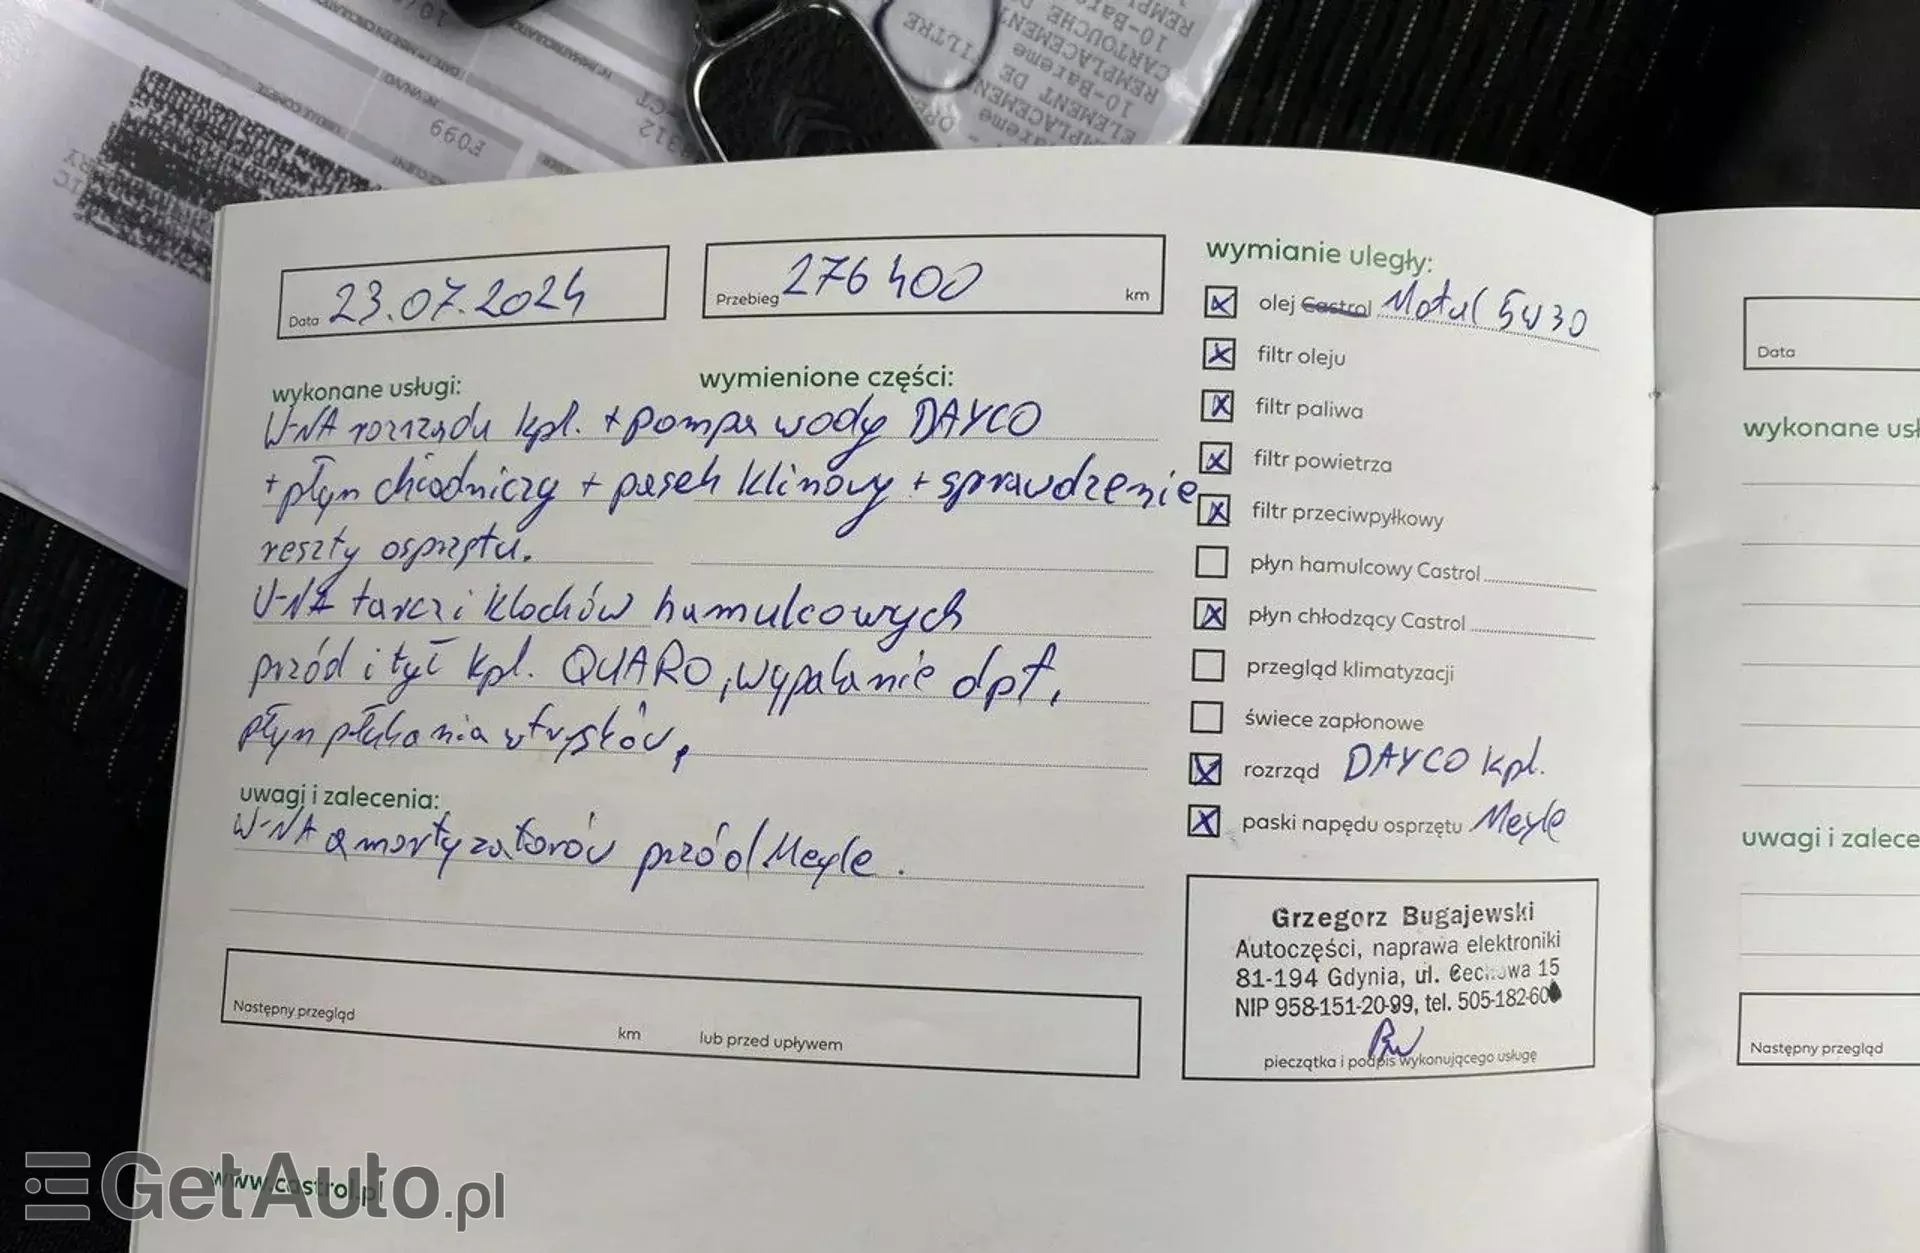 E099
Data 23.07.2024
Przebieg 276 400 km
wykonane usługi:
wymienione części:
W-NA rozrządu kpl. + pompa wody DAYCO
+ płyn chłodniczy + pasek klinowy + sprawdzenie
reszty osprzętu.
W-NA tarcz i klocków hamulcowych
przód i tył kpl. QUARO, wypalanie dpf,
płyn płukania wtrysków,
uwagi i zalecenia:
W-NA amortyzatorów przód Meyle.
Następny przegląd km lub przed upływem
www.castrol.pl
wymianie uległy:
olej Castrol Motul 5W30
filtr oleju
filtr paliwa
filtr powietrza
filtr przeciwpyłkowy
płyn hamulcowy Castrol
płyn chłodzący Castrol
przegląd klimatyzacji
świece zapłonowe
rozrząd DAYCO kpl.
paski napędu osprzętu Meyle
Grzegorz Bugajewski
Autoczęści, naprawa elektroniki
81-194 Gdynia, ul. Cechowa 15
NIP 958-151-20-99, tel. 505-182-60
pieczątka i podpis wykonującego usługę
Data
wykonane usł
uwagi i zalece
Następny przegląd
GetAuto.pl